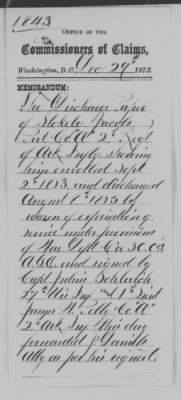 1843
OFFICE OF THE
Commissioners of Claims,
Washington, D.C. Dec 29th 1873.
MEMORANDUM:
The Discharge Paper
of Stokely Jacobs
Pvt Co "A" 2d Regt
of Ark Infty showing
him enrolled Sept
2d 1863 and discharged
August 8th 1865 by
reason of expiration of
service under provisions
of War Dept
AGO and signed by
Capt Julius
27th Wis Inf and 1st Lieut
James H. Co "A"
2d Ark Inf this day
forwarded G Daniels
Atty as per his request.